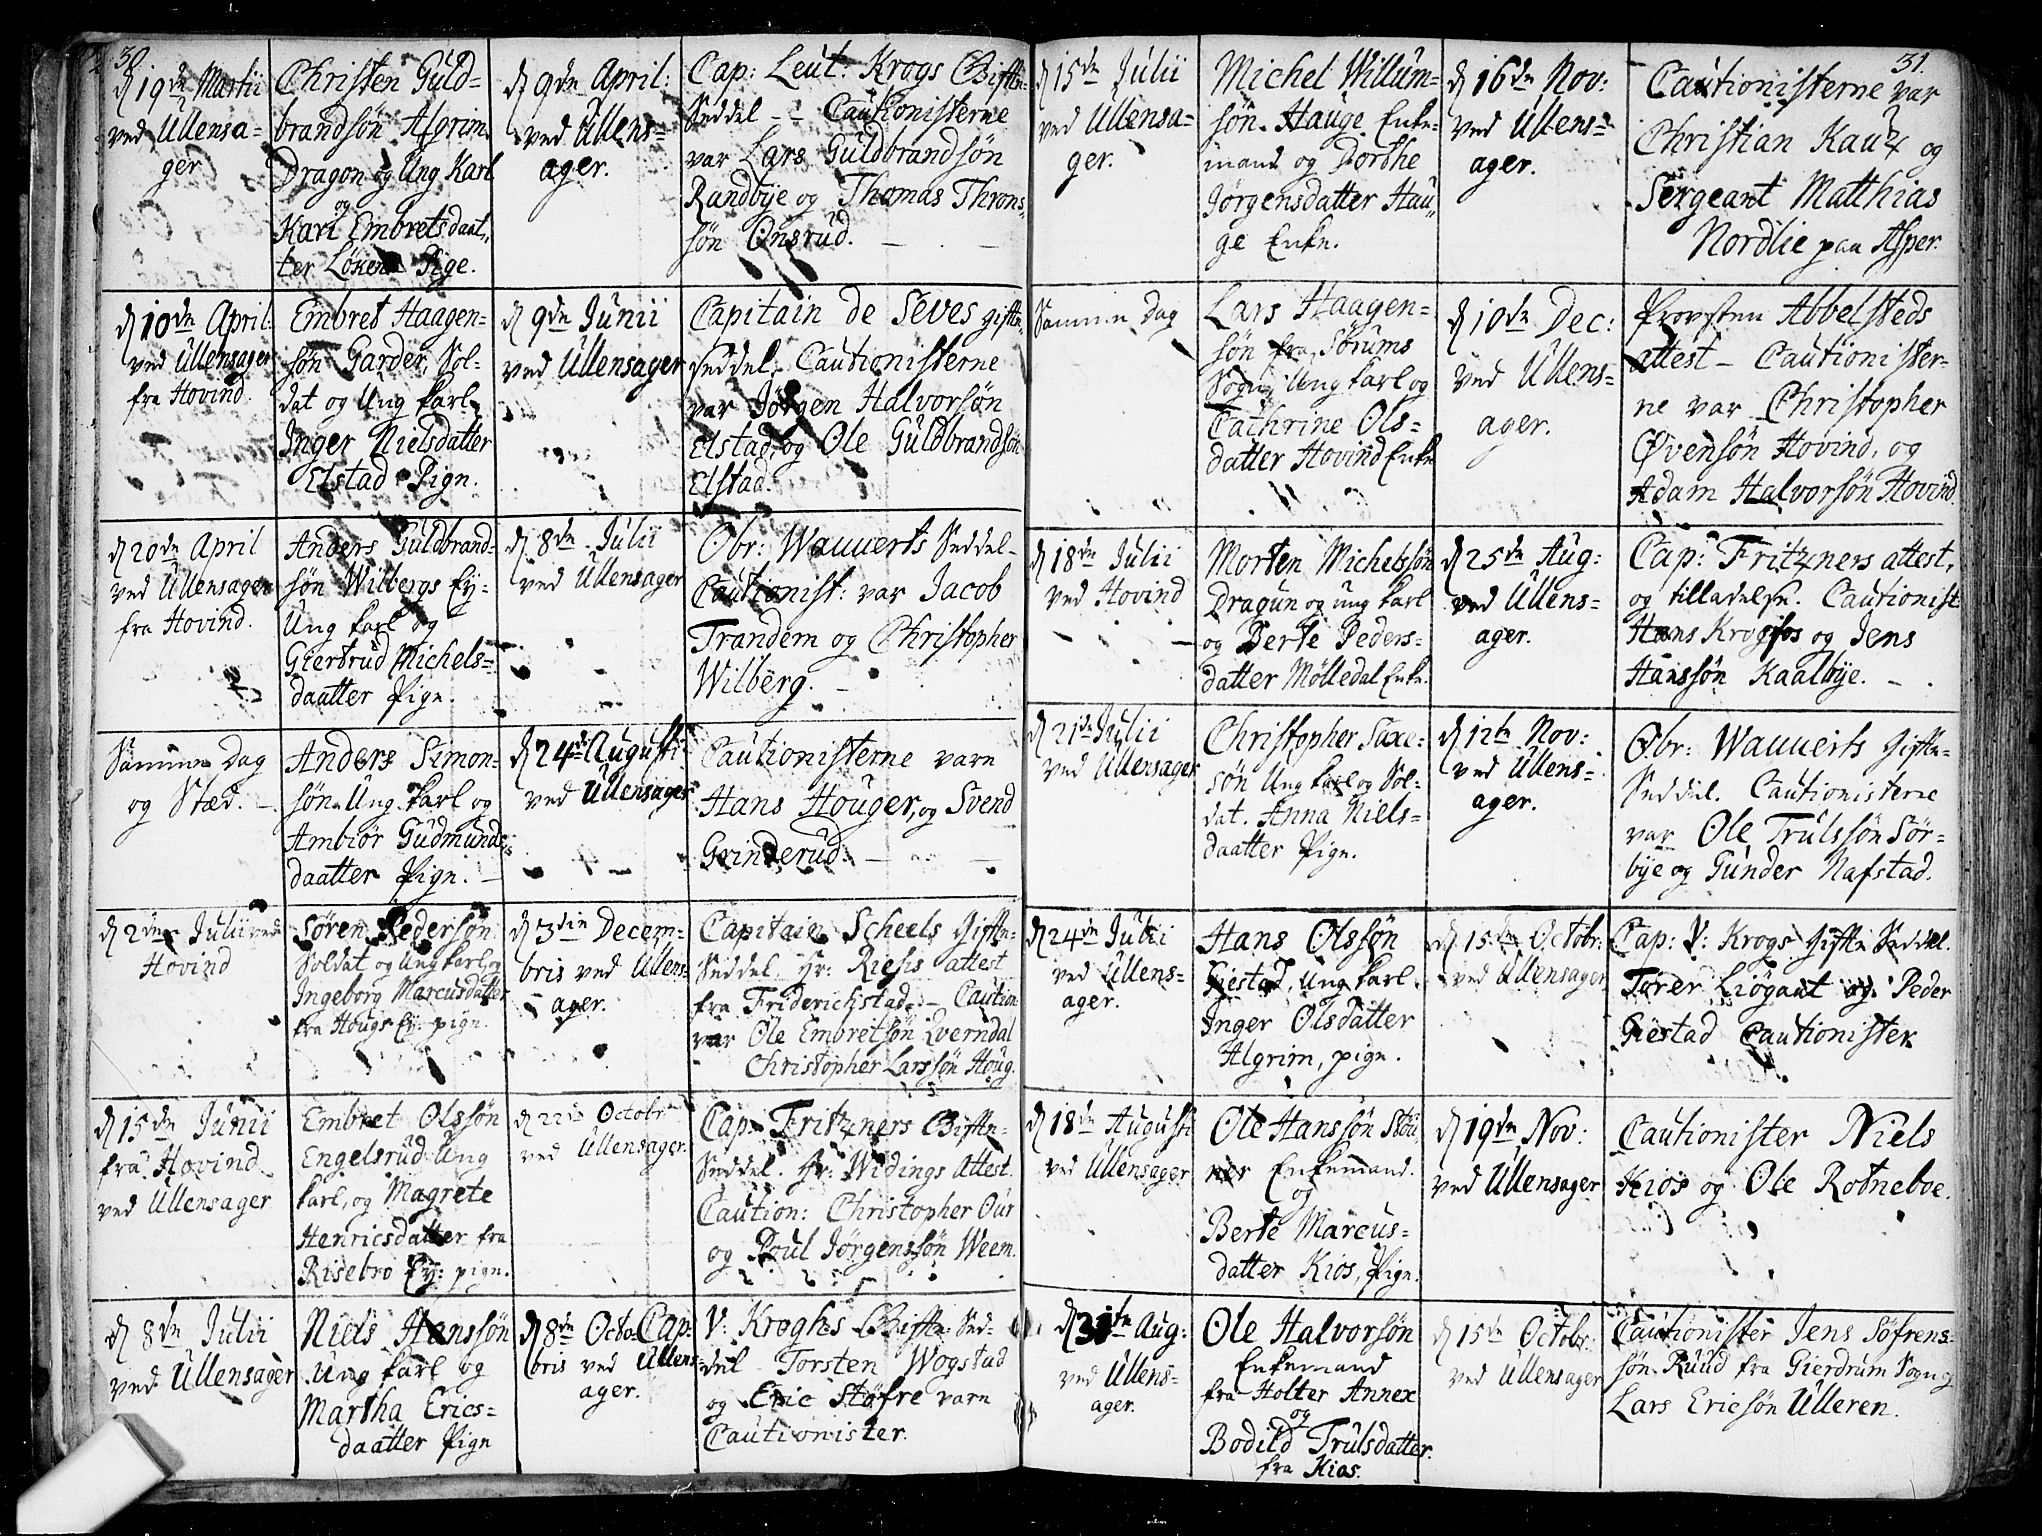 30
d 19de Martii
ved Ullensa-
ger
Christen Guld-
brandsön Algrim
Dragon og Ung Karl
og
Kari Embretsdaat-
ter Löken Pige.
d. 9de April:
ved Ullens-
ager.
Cap: Leut: Krogs Gifte-
Seddel - - Cautionisterne
var Lars Guldbrandsön
Randbye og Thomas Throns-
sön Onsrud. - -
d 10de April:
ved Ullensager
fra Hovind.
Embret Haagen-
sön Garder, Sol-
dat og Ung karl,
Inger Nielsdatter
Elstad Pige.
d 9de Junii
ved Ullensager
Capitain de Seves gifte-
seddel, Cautionisterne
var Jörgen Halvorsön
Elstad, og Ole Guldbrandsön
Elstad.
d 20de April
ved Ullensager
fra Hovind.
Anders Guldbrand-
sön Wilbergs Ey-
Ung karl og
Giertrud Michels-
daatter Pige.
d 8de Julii
ved Ullensager
Obr: Wauverts Seddel-
Cautionist: var Jacob
Trandem og Christopher
Wilberg. -
Samme Dag
og Stæd. -
Anders Simon-
sön Ung karl og
Ambiör Gudmunds-
daatter Pige. -
d 24de Augusti
ved Ullensager
Cautionisterne vare
Hans Houger, og Svend
Grinderud. - -
d 2den Julii ved
Hovind
Sören Pedersön
Soldat og Ung karl, og
Ingeborg Marcusdatter
fra Hougs Ey: pige.
d 3die Decem-
bris ved Ullens-
ager.
Capitain Scheels Gifte-
Seddel. Hr: Riesis attest
fra Friderichstad. - Caution
var Ole Embretsön Qverndal
Christopher Larssön Houg.
d 15de Junii
fra Hovind
ved Ullensager
Embret Olssön
Engelsrud Ung
karl, og Magrete
Henricsdatter fra
Risebro Ey: pige.
d 22de Octobr
ved Ullensager.
Cap: Fritzners Gifte-
Seddel. Hr: Widings Attest.
Caution: Christopher Our
og Poul Jörgenssön Weem.
d 8de Julii
ved Ullensager
Niels Hanssön
Ung karl og
Martha Erics-
daatter Pige
d 8de Octo-
bris ved Ullens-
ager.
Cap: V: Kroghs Gifte- Sed-
del Torsten Wogstad
og Eric Stöfre vare
Cautionister.
31.
d 15de Julii
ved Ullensa-
ger.
Michel Willum-
sön Hauge Enke-
mand og Dorthe
Jörgensdatter Hau-
ge Enke.
d 16de Nov:
ved Ullens-
ager.
Cautionisterne var
Christian Kautz og
Sergeant Matthias
Nordlie paa Asper.
Samme Dag
Lars Haagen-
sön fra Sörums
Sogn, Ung karl og
Cathrine Ols-
datter Hovind Enke
d 10de Dec:
ved Ullens-
ager.
Provsten Abbelsteds
attest - Cautionister-
ne var Christopher
Övensön Hovind, og
Adam Halvorsön Hovind.
d 18de Julii
ved Hovind
Morten Michelssön
Dragun og ung karl
og Berte Peders-
datter Mölledal Enke.
d 25de Aug:
ved Ullens-
ager.
Cap: Fritzners attest,
og tilladelse. Cautionist
Hans Krogsfos og Jens
Hanssön Kaalbye. -
d 21de Julii
ved Ullensager
Christopher Saxe-
sön Ung karl og Sol-
dat. Anna Niels-
daatter Pige.
d 12te Nov:
ved Ullens-
ager.
Obr: Wauverts Gifte-
Seddel. Cautionisterne
var Ole Trulssön Sör-
bye og Gunder Nafstad.
d 24de Julii
ved Ullens-
ager.
Hans Olssön
Giestad, Ung karl.
Inger Olsdatter
Algrim, pige.
d 15de Octobr:
ved Ullensager
Cap: V: Krogs Gifte Seddel.
Torer Liögaat og Peder
Giestad Cautionister
d 18de Augusti
ved Ullensager
Ole Hanssön Stöu
ner Enkemand.
og
Berte Marcus-
datter Kios, Pige.
d 19de Nov:
ved Ullensager
Cautionister Niels
Kios og Ole Rotneboe.
d 31te Aug:
ved Ullens-
ager.
Ole Halvorsön
Enkemand
fra Holter Annex
og
Bodild Trulsdatter
fra Kios.
d 15de Octobr:
ved Ullensager
Cautionister Jens Söfrens-
sön Ruud fra Gierdrum Sogn og
Lars Ericsön Ulleren.